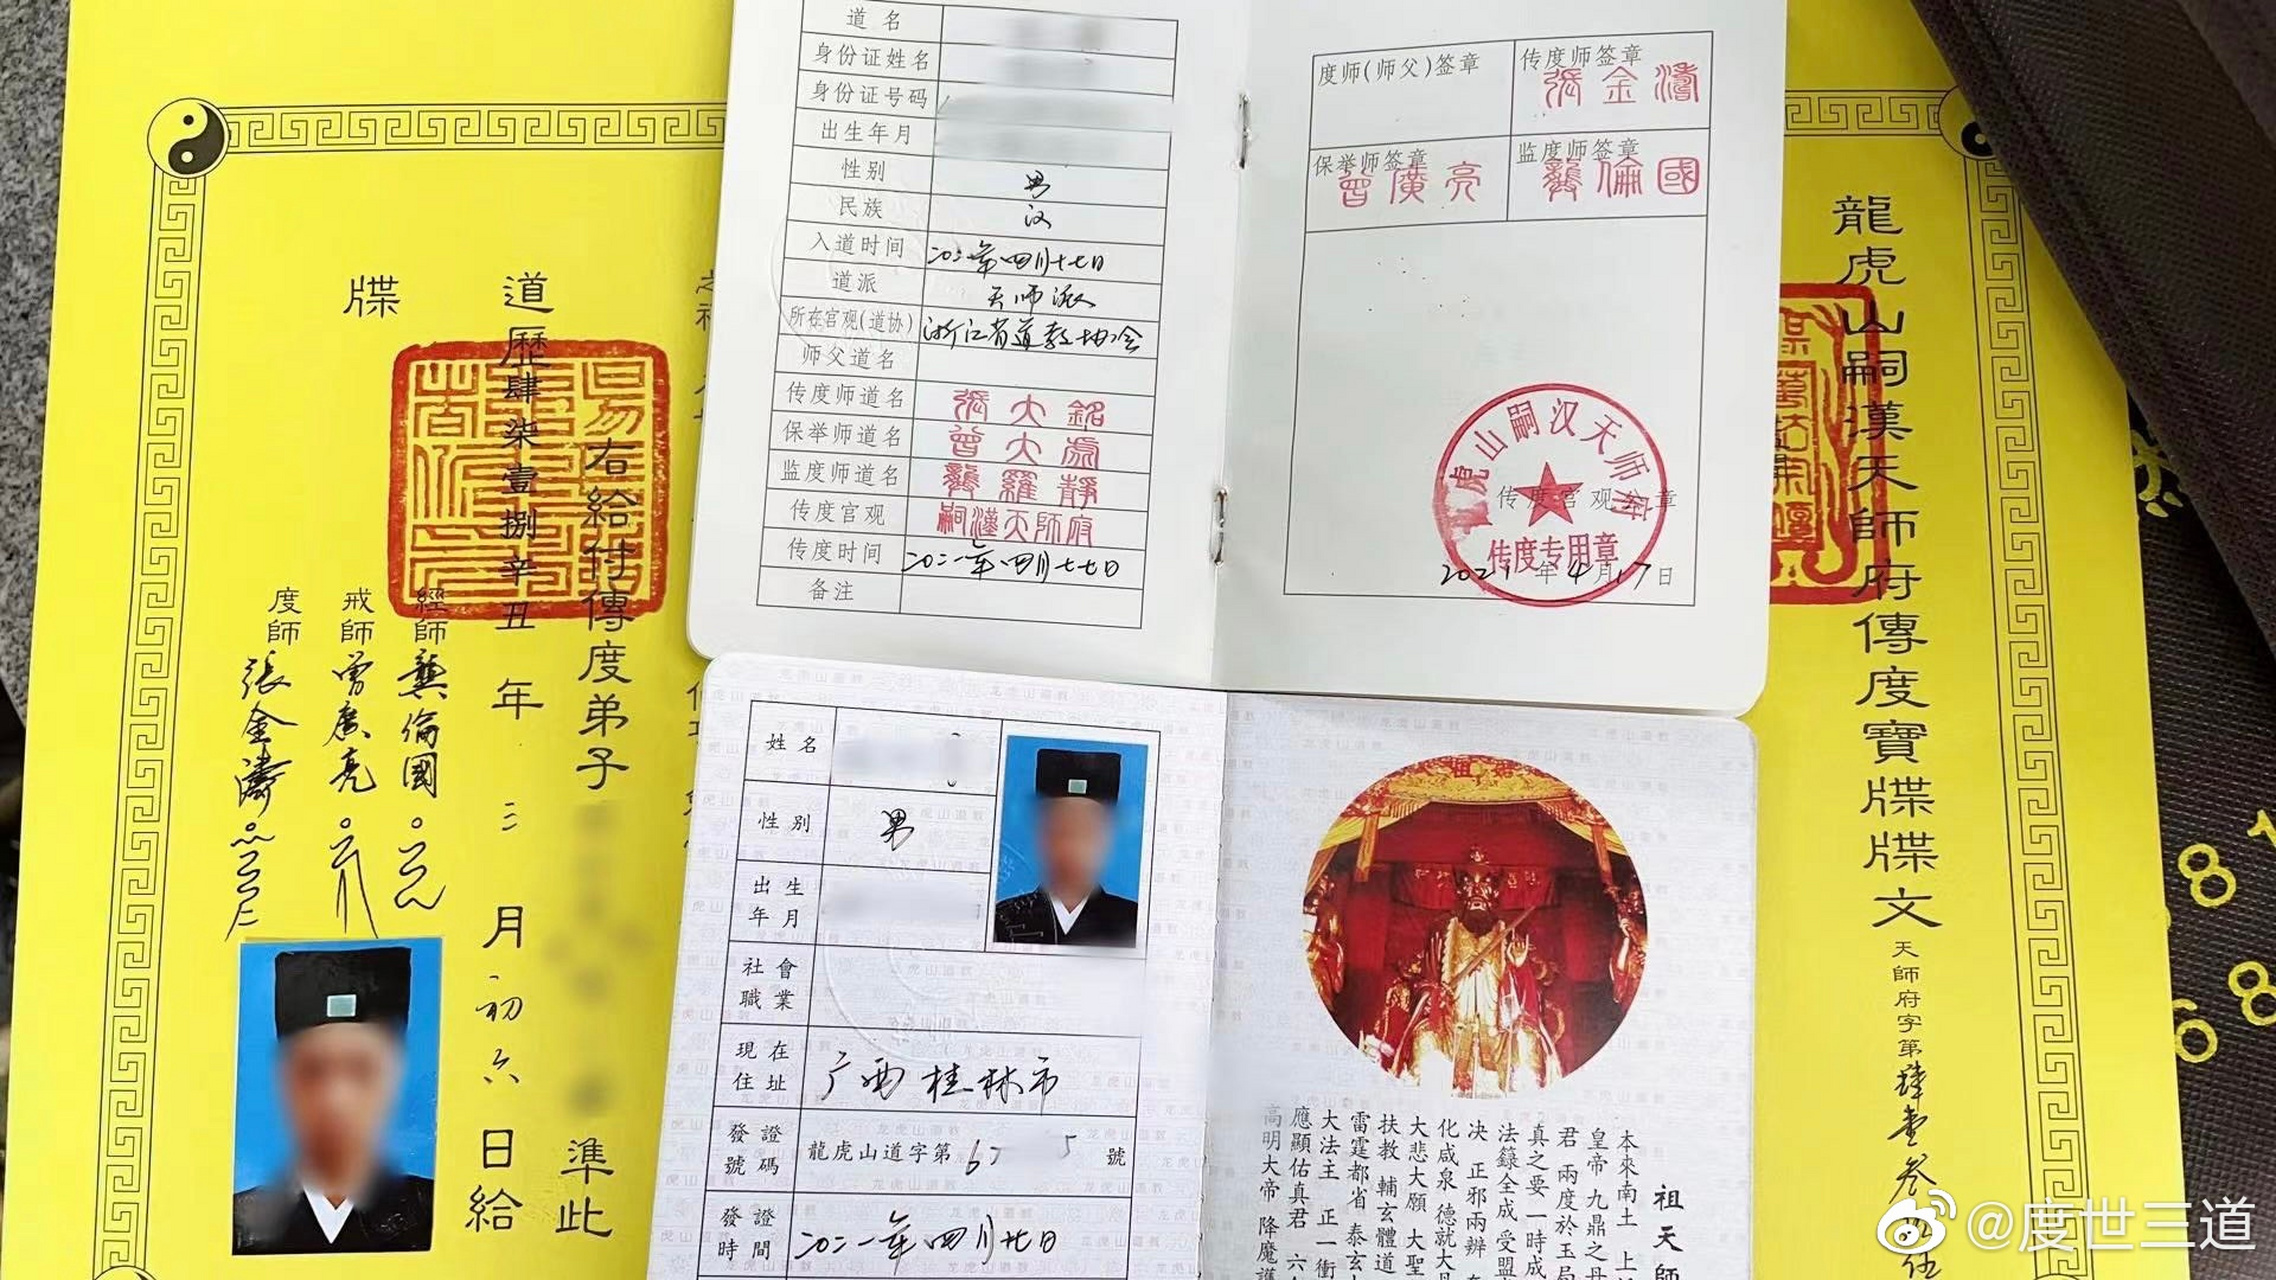 道名
身份证姓名
身份证号码
出生年月
性别 男
民族 汉
入道时间 二〇二一年四月十七日
道派 天师派
所在宫观(道协) 浙江省道教协会
师父道名
传度师道名 張大銘
保举师道名 曾大處
监度师道名 龔羅靜
传度宫观 嗣漢天師府
传度时间 二〇二一年四月十七日
备注
度师(师父)签章
传度师签章 張金濤
保举师签章 曾廣亮
监度师签章 龔倫國
虎山嗣汉天师府
传度宫观签章
传度专用章
2021年4月17日
姓名
性别 男
出生年月
社會職業
現在住址 广西桂林市
發證號碼 龍虎山道字第 號
發證時間 二〇二一年四月十七日
祖天師
本來南土 上
皇帝 九鼎之丹
君 兩度於玉局
真之要 一時成
法籙全成 受盟
決 正邪兩辨
化咸泉 德就大丹
大悲大願 大聖
扶教 輔玄體道
雷霆都省 泰玄
大法主 正一衝
應顯佑真君 六
高明大帝 降魔護
龍虎山嗣漢天師府傳度寶牒牒文
天師府字第肆壹叁
右給付傳度弟子
準此
道歷肆柒壹捌辛丑年三月初六日給
牒
經師 龔倫國
戒師 曾廣亮
度師 張金濤
81
68
@度世三道